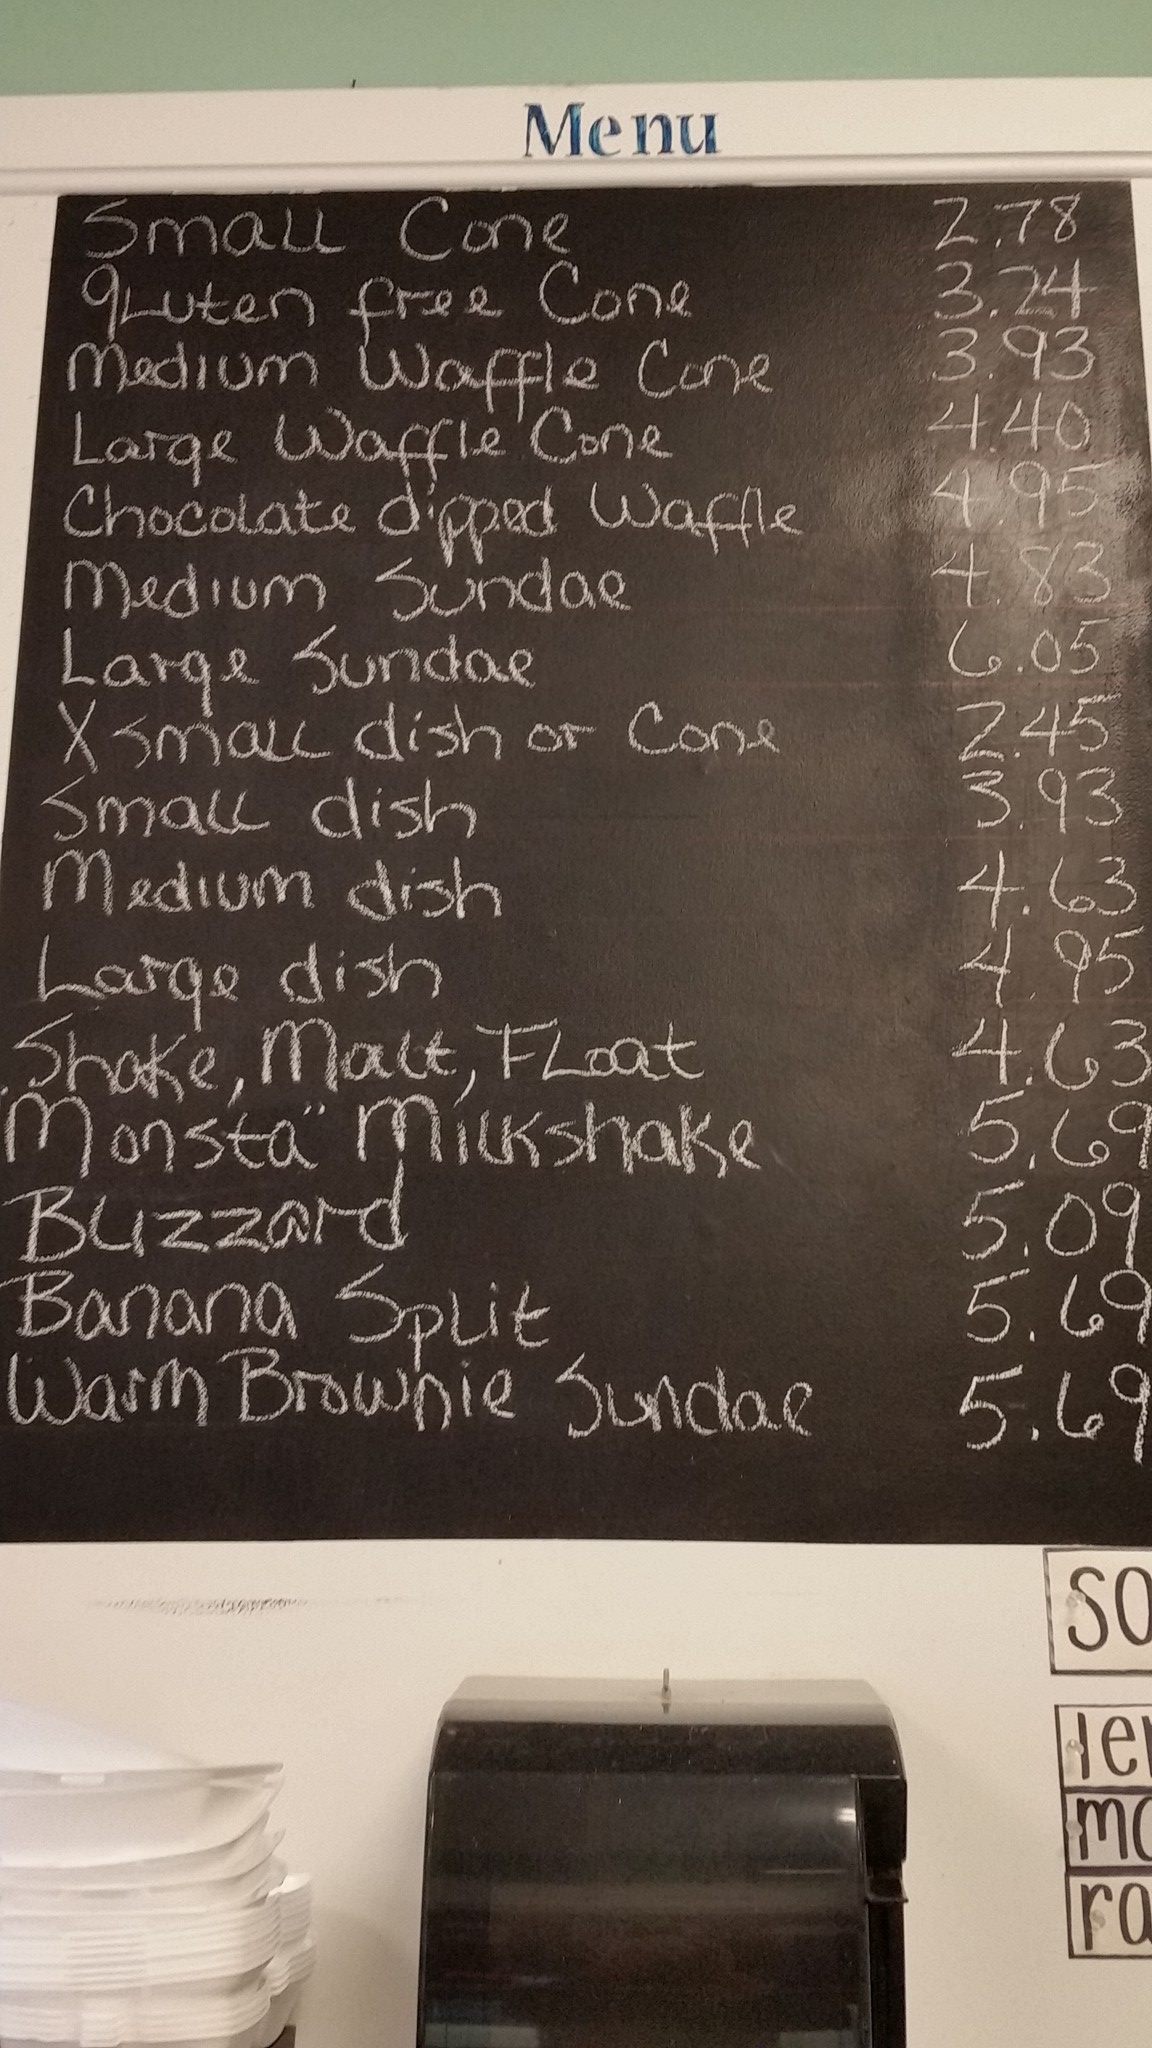 Menu
Small Cone 2.78
gluten free Cone 3.24
Medium Waffle Cone 3.93
Large Waffle Cone 4.40
Chocolate dipped Waffle 4.95
Medium Sundae 4.83
Large Sundae 6.05
X small dish or Cone 2.45
Small dish 3.93
Medium dish 4.63
Large dish 4.95
Shake, Malt, Float 4.63
Monsta" Milkshake 5.69
Blizzard 5.09
Banana Split 5.69
Warm Brownie Sundae 5.69
so
le
mo
ra